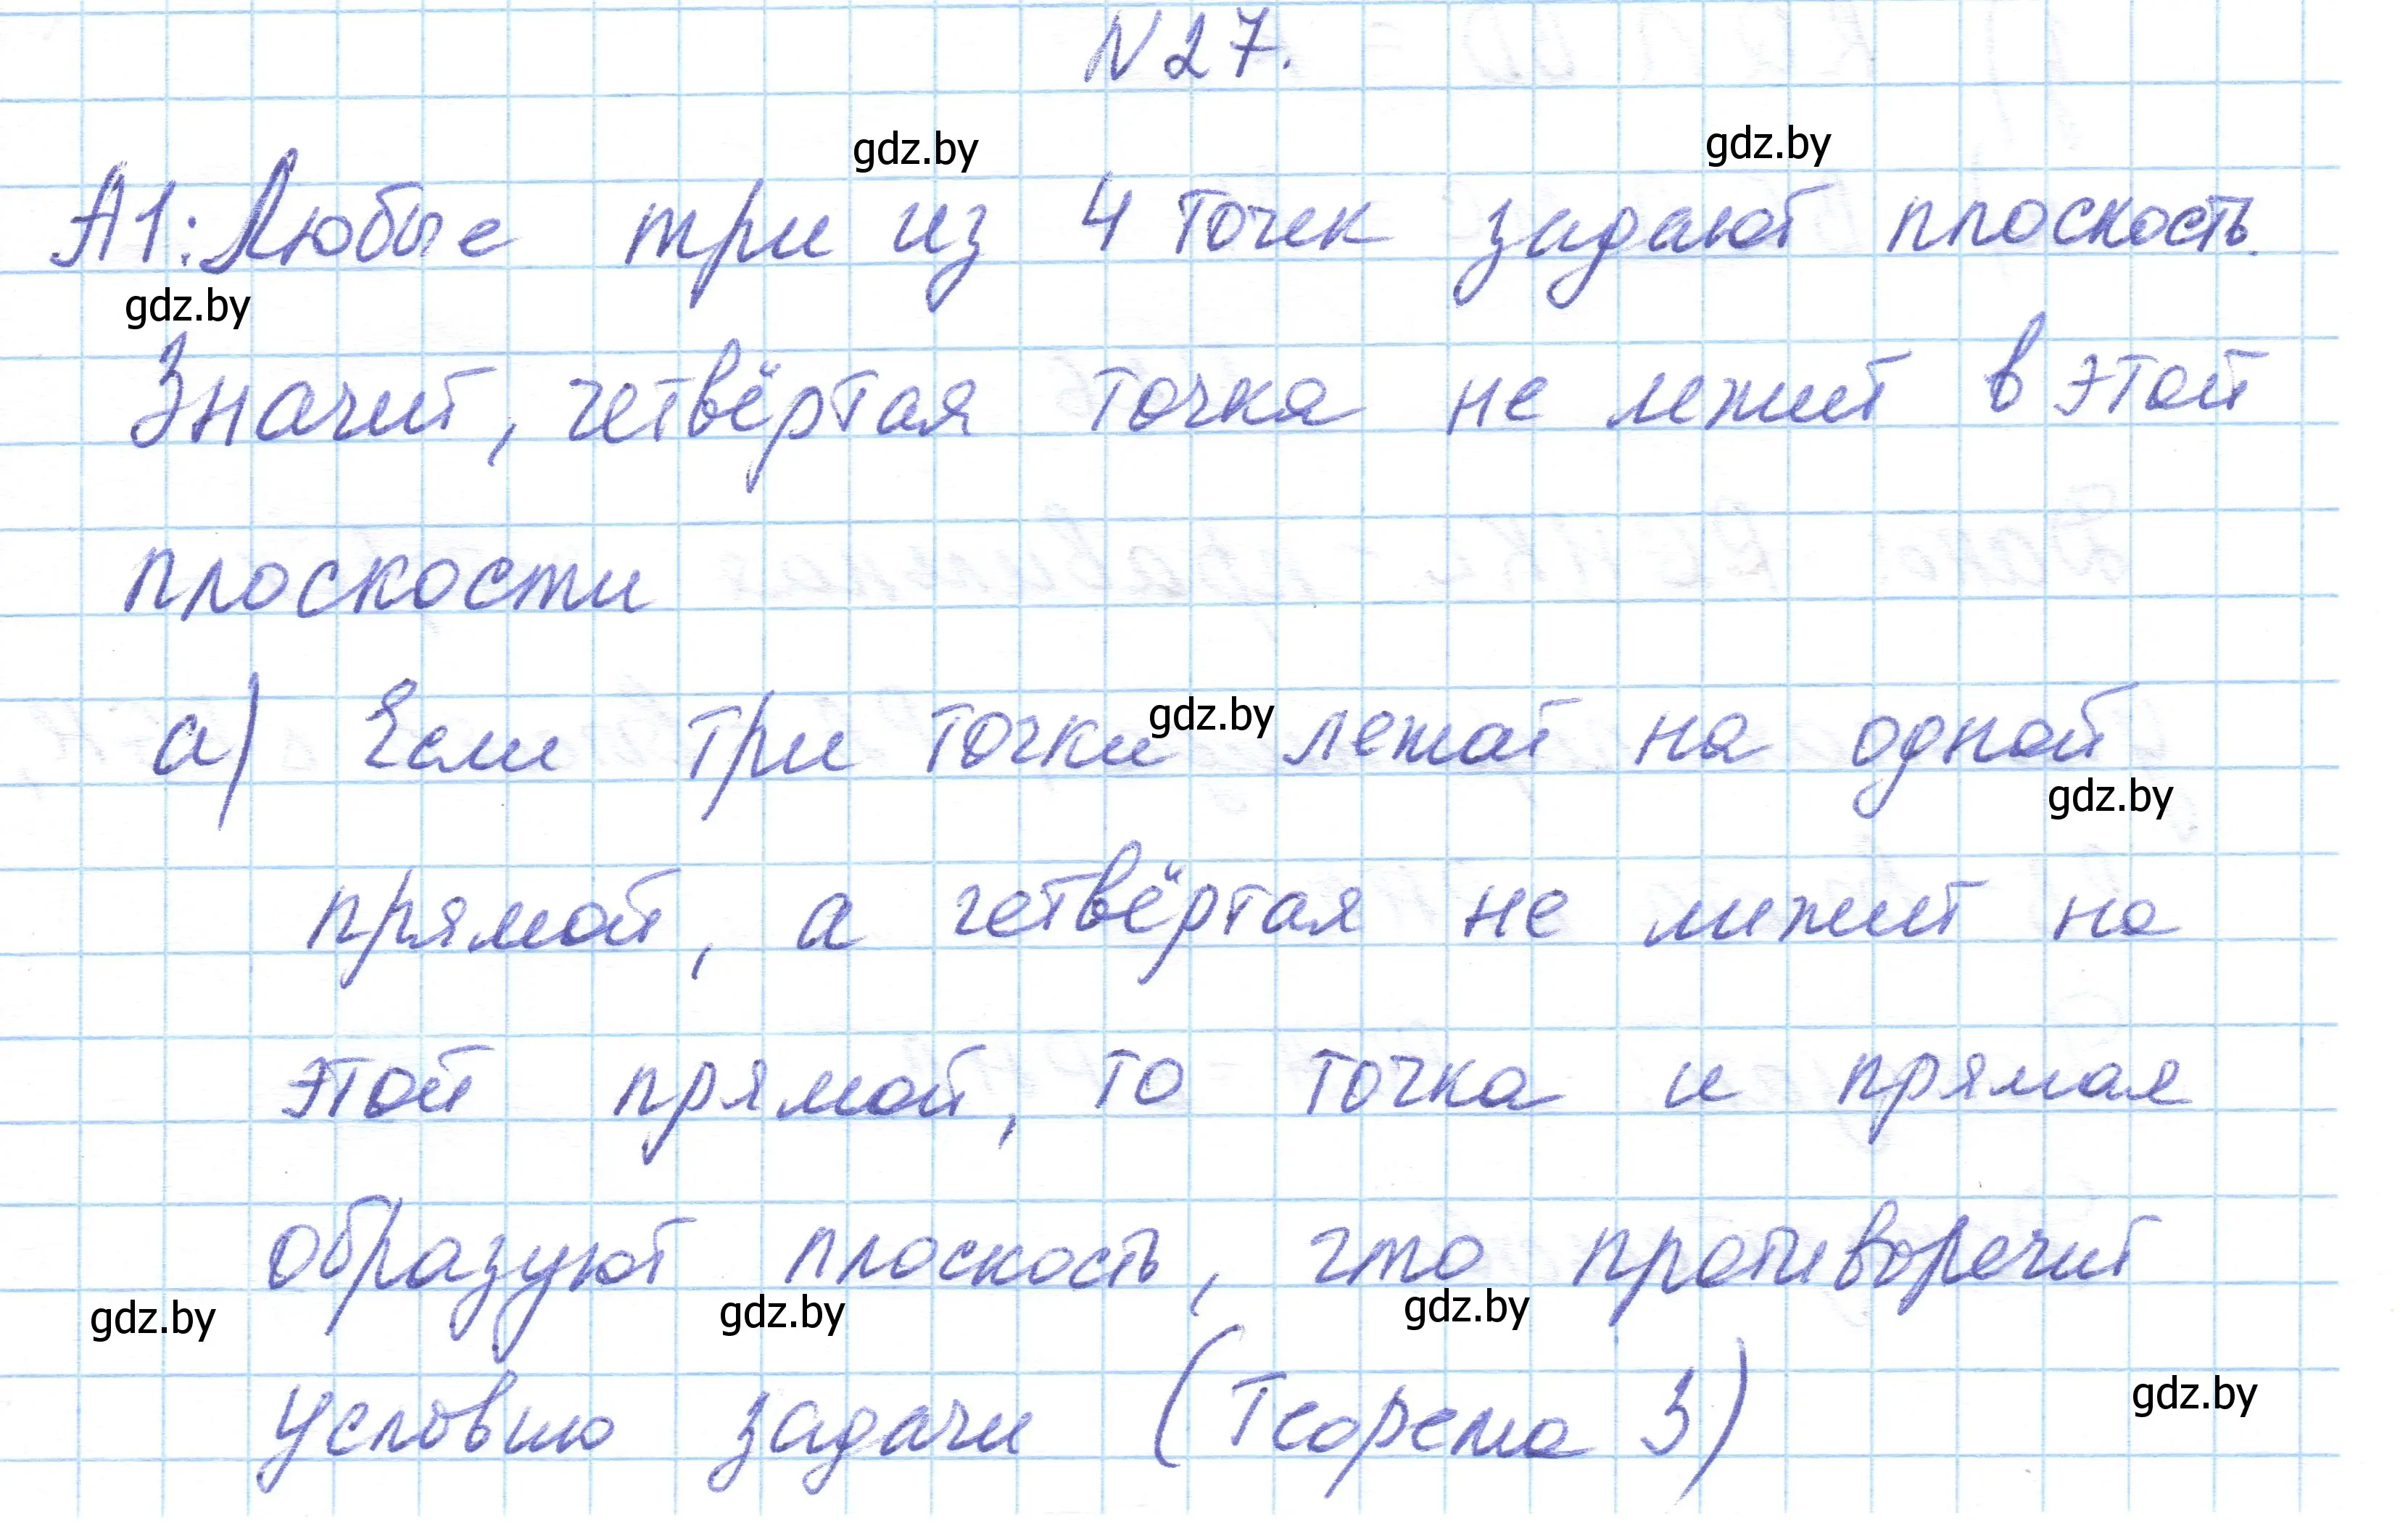 N27.
gdz.by gdz.by
А1: Любые три из 4 точек задают плоскость.
gdz.by
Значит, четвёртая точка не лежит в этой
плоскости
а) Если три точки gdz.by лежат на одной
gdz.by
прямой, а четвёртая не лижит на
этой прямой, то точка и прямая
образуют плоскость, что противоречит
gdz.by gdz.by gdz.by
условию задачи (Теорема 3)
gdz.by